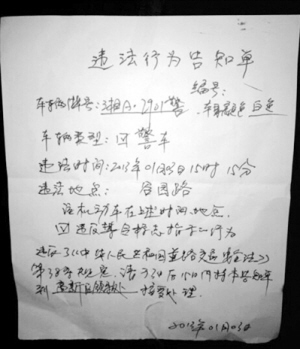 违法行为告知单
编号:
车辆牌号: 湘A·2901警 车身颜色 白色
车辆类型: 警车
违法时间: 2013年01月03日15时15分
违法地点: 园路
该机动车在上述时间、地点
因违反禁令标志指示行为
违反了《中华人民共和国道路交通安全法》
第38条规定,请于3日后15日内持本告知单
到 接受处理。
2013年01月03日